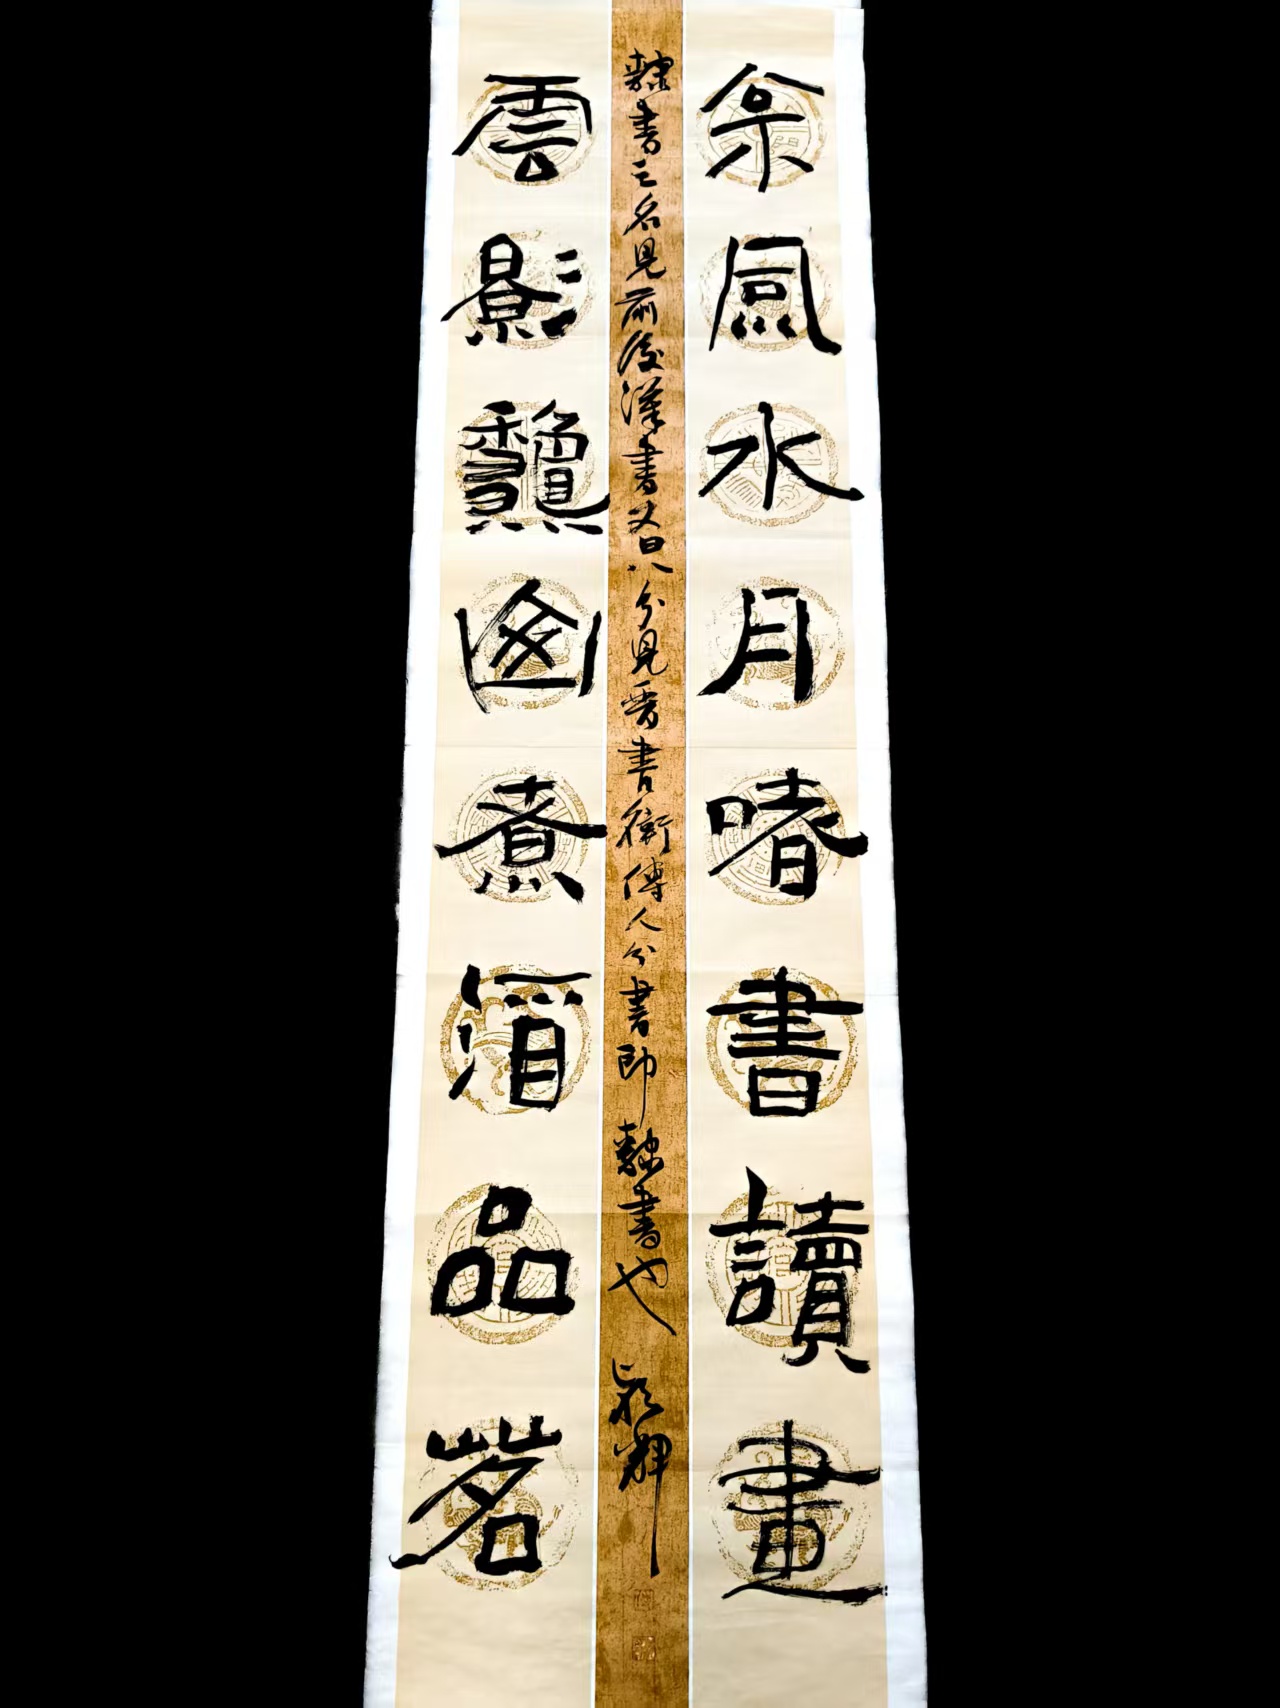 枀風水月嗜書讀畫
隸書之名見前後漢書又曰八分見晉書衛傳八分書即隸書也
雲影龝囪煮酒品茗